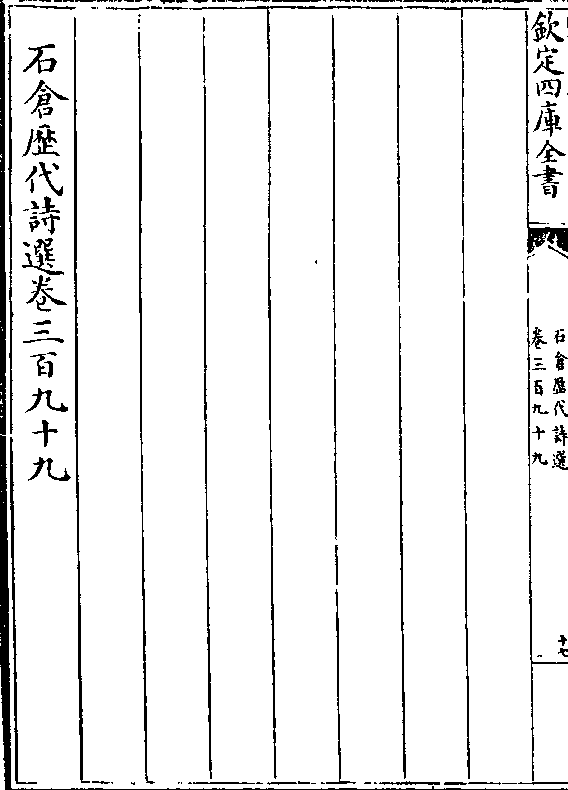 欽定四庫全書
石倉歷代詩選
卷三百九十九
十七
石倉歷代詩選卷三百九十九